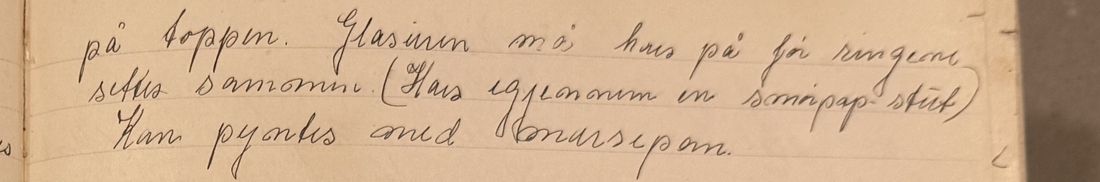 på toppen. Glasuren må has på før ringene
settes sammen. (Has igjennom en smørpap-stut)
Kan pyntes med marsepan.